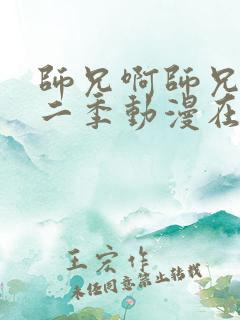 師兄啊師兄
二季動漫在
王宏作
未經同意禁止轉載